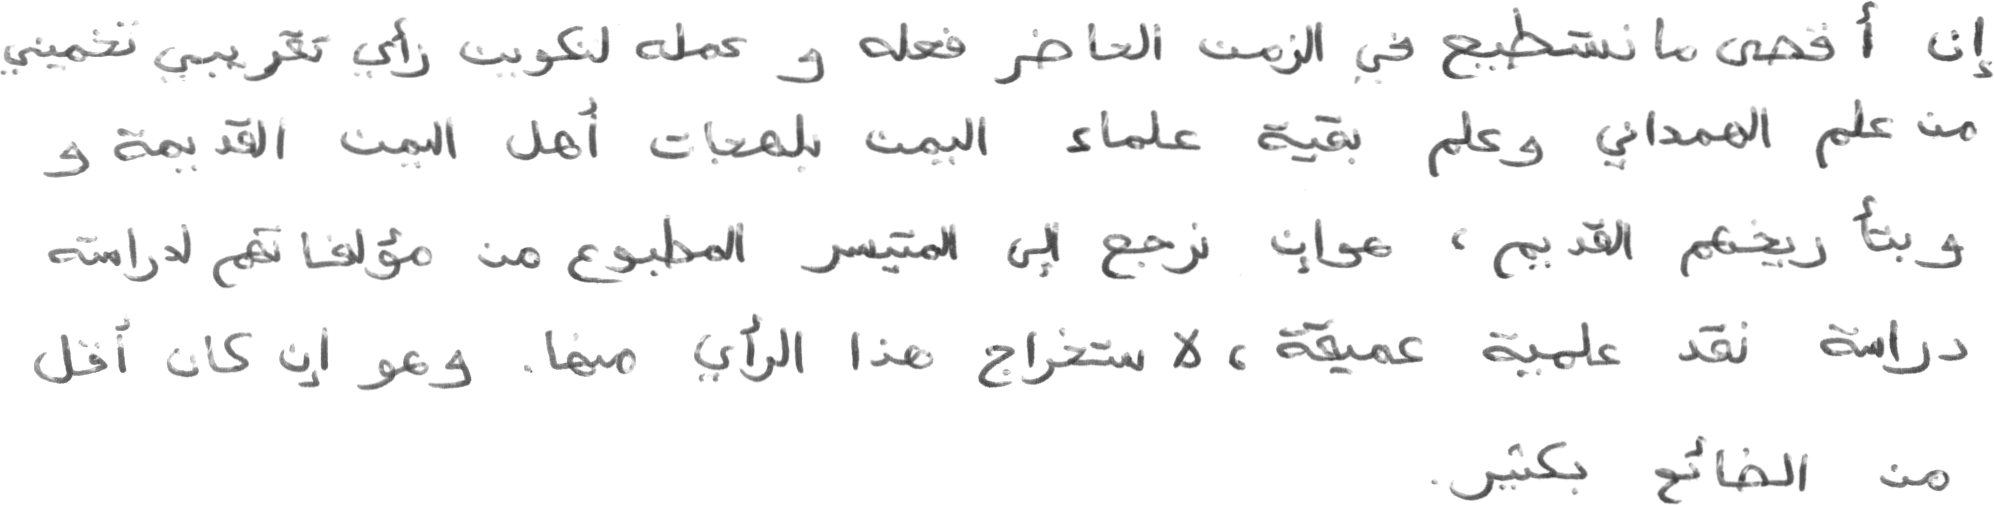 إن أقصى ما نستطيع في الزمن الحاضر فعله و عمله لتكوين رأي تقريبي تخميني
من علم الهمداني وعلم بقية علماء اليمن بلهجات أهل اليمن القديمة و
وبتأريخهم القديم، هو إن نرجع إلى المتيسر المطبوع من مؤلفاتهم لدراسته
دراسة نقد علمية عميقة، لاستخراج هذا الرأي منها. وهو إن كان أقل
من الضائع بكثير.